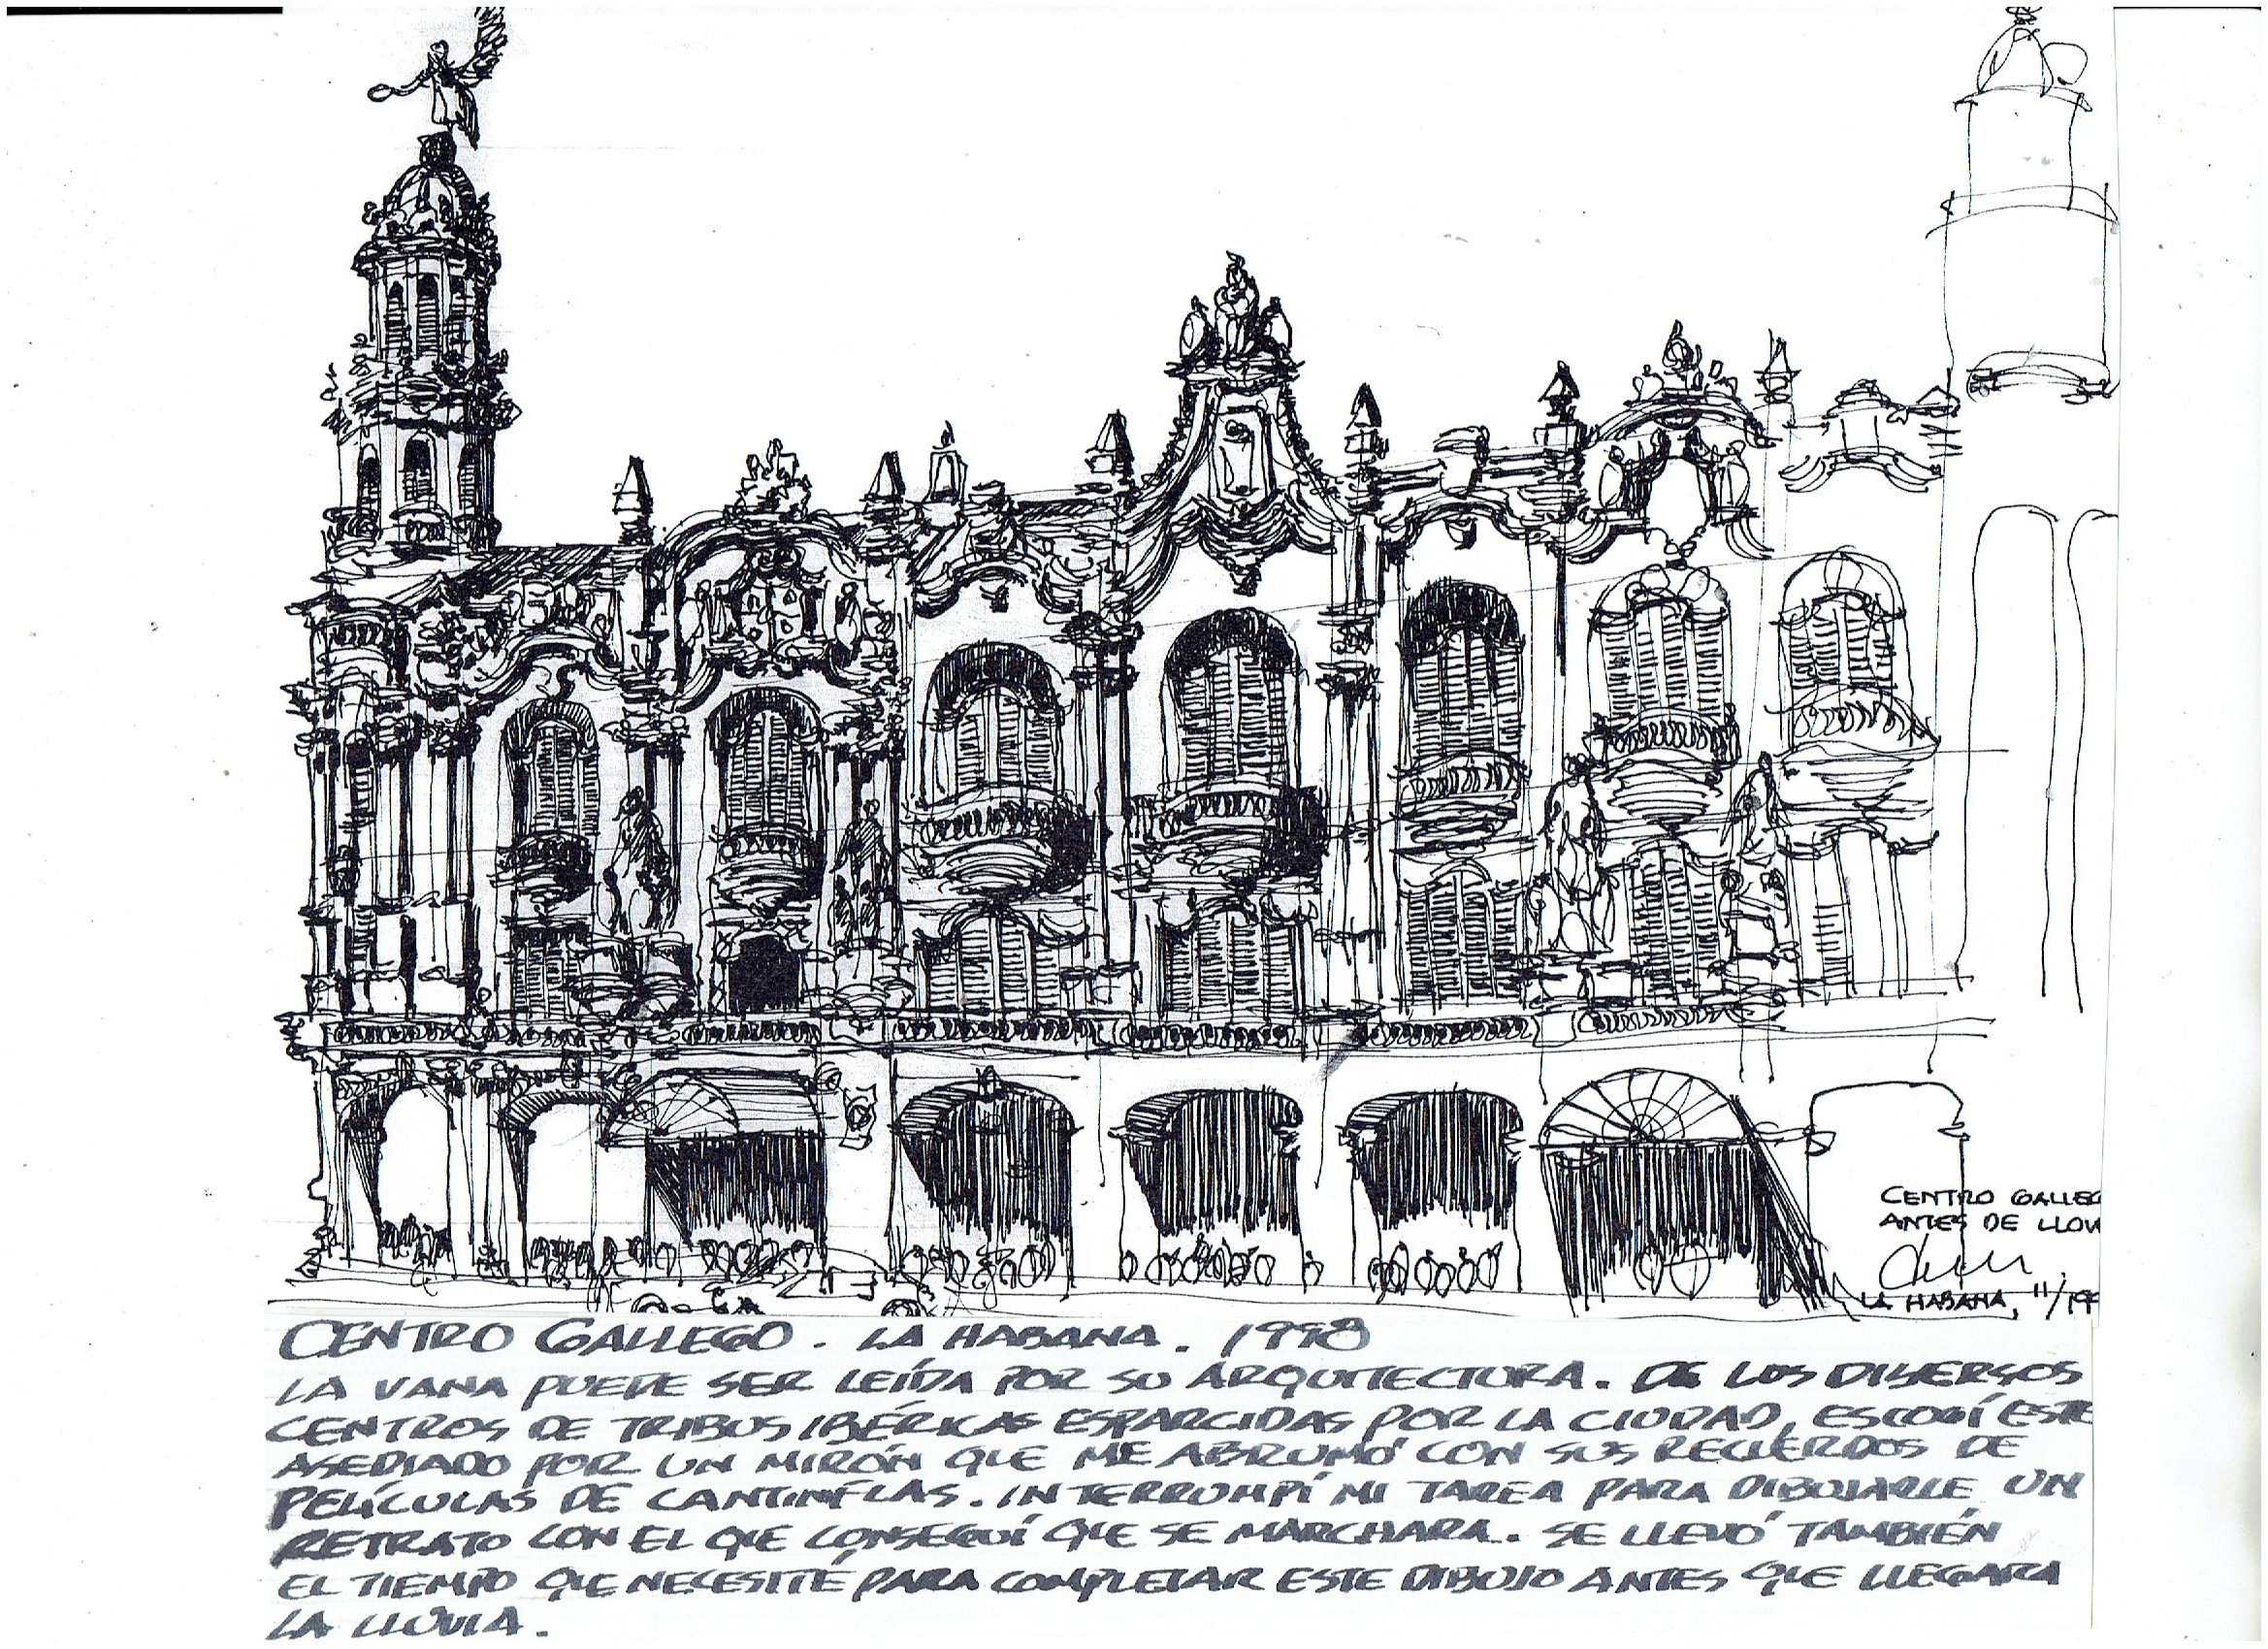 CENTRO GALLEG
ANTES DE LLOV
LA HABANA, 11/199
CENTRO GALLEGO. LA HABANA. 1998
LA VANA PUEDE SER LEÍDA POR SU ARQUITECTURA. DE LOS DIVERSOS
CENTROS DE TRIBUS IBÉRICAS ESPARCIDAS POR LA CIUDAD, ESCOGÍ ESTE
ASEDIADO POR UN MIRÓN QUE ME ABRUMÓ CON SUS RECUERDOS DE
PELÍCULAS DE CANTINFLAS. INTERRUMPÍ MI TAREA PARA DIBUJARLE UN
RETRATO CON EL QUE CONSEGUÍ QUE SE MARCHARA. SE LLEVÓ TAMBIÉN
EL TIEMPO QUE NECESITÉ PARA COMPLETAR ESTE DIBUJO ANTES QUE LLEGARA
LA LLUVIA.